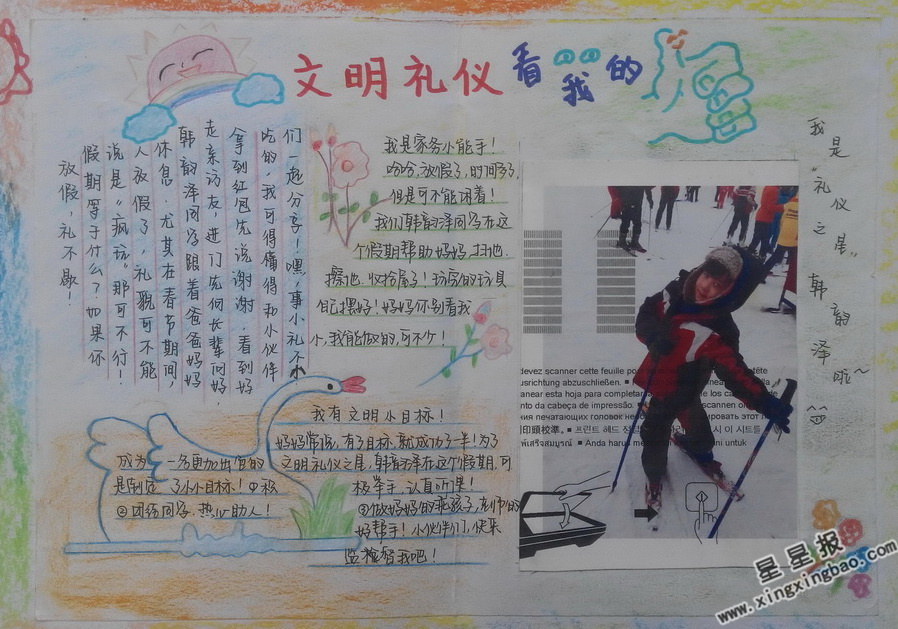 文明礼仪看我的
放假,礼不歇!
假期等于什么?如果你
说是“疯玩”那可不行!
人放假了,礼貌可不能
休息.尤其在春节期间,
韩韵泽同学跟着爸爸妈妈
走亲访友,进门先向长辈问好
拿到红包先说谢谢.看到
吃的,我可得懂得和小伙伴
们一起分享!嘿,事小礼不小
我是家务小能手!
哈哈,放假了,时间多了,
但是可不能闲着!
我们韩韵泽同学在这
个假期帮助妈妈扫地.
擦地.收拾屋子!玩完的玩具
自己摆好!妈妈你别看我
小,我能做的,可不少!
我有文明小目标!
妈妈常说,有了目标,就成功了一半!为了
成为一名更加出色的文明礼仪之星,韩韵泽在这个假期,可
是制定了小小目标!①积极举手,认真听课!
②团结同学,热心助人!③做好妈妈的乖孩子,老师的
好帮手!小伙伴们,快来
监督我吧!
我是“礼仪之星”韩韵泽啦~
devez scanner cette feuille pour
usrichtung abzuschließen. ■
anear esta hoja para completar
nto da cabeça de impressão. ■
ния печатающих головок
印頭校準。 ■ 프린트 헤드
ให้เสร็จสมบูรณ์ ■ Anda harus
scannen om
시 이 시트를
ini untuk
星星报
www.xingxingbao.com